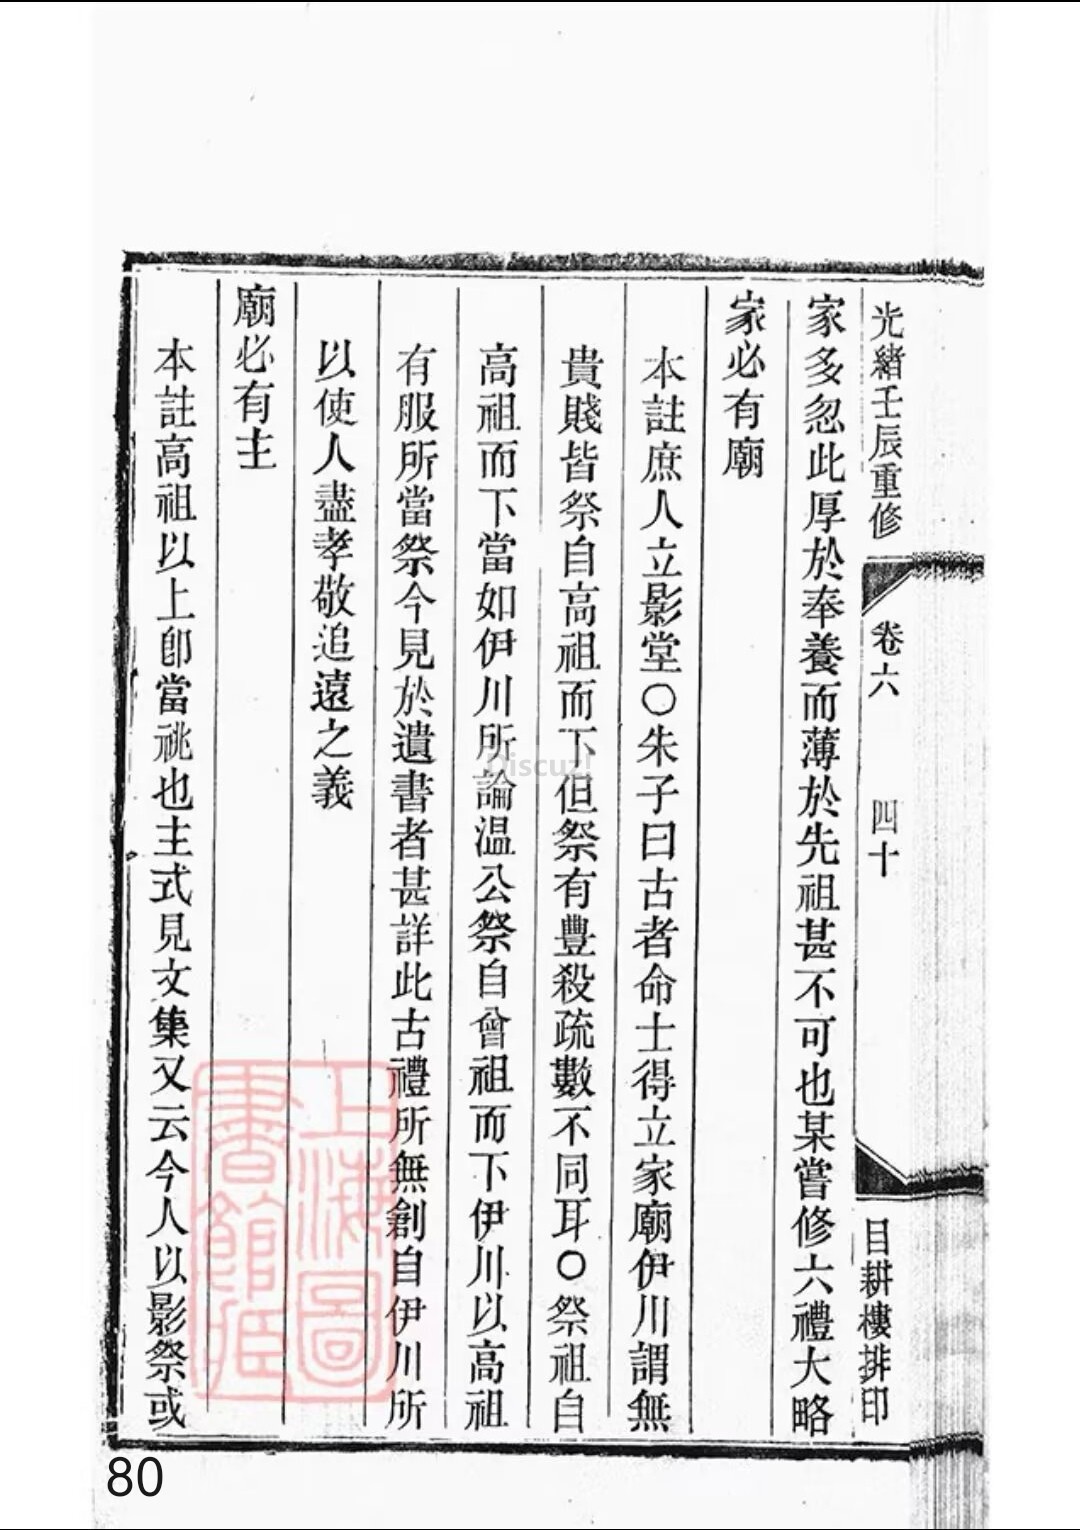 光緒壬辰重修 卷六 四十 目耕樓排印
家多忽此厚於奉養而薄於先祖甚不可也某嘗修六禮大略
家必有廟
本註庶人立影堂〇朱子曰古者命士得立家廟伊川謂無
貴賤皆祭自高祖而下但祭有豐殺疏數不同耳〇祭祖自
高祖而下當如伊川所論温公祭自曾祖而下伊川以高祖
有服所當祭今見於遺書者甚詳此古禮所無創自伊川所
以使人盡孝敬追遠之義
廟必有主
本註高祖以上卽當祧也主式見文集又云今人以影祭或
上海圖書館藏
Discuz!
80